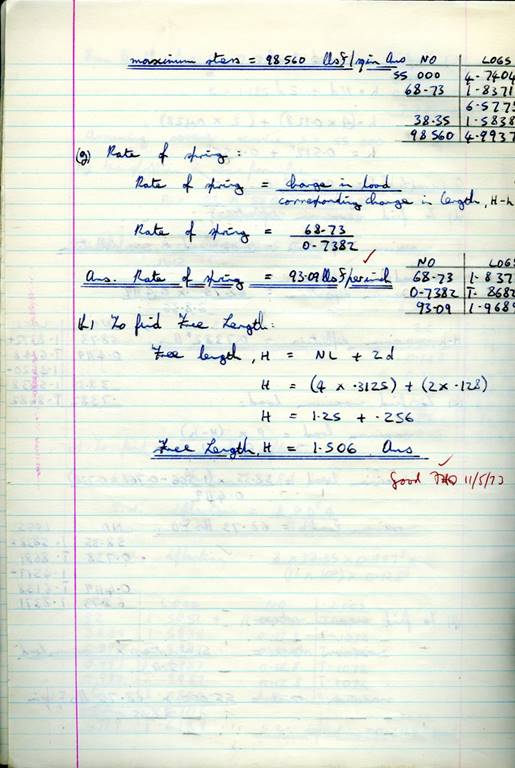 maximum stress = 98560 lbsf/sqin Ans
NO LOGS
55 000 4.7404
68.73 1.8371
6.5775
38.35 1.5838
98560 4.9937
(g) Rate of spring:
Rate of spring = change in load
corresponding change in length, H-h
Rate of spring = 68.73
0.7382
NO LOGS
Ans. Rate of spring = 93.09 lbsf/per inch
68.73 1.837
0.7382 1.8682
93.09 1.9689
(h) To find Free Length:
Free length, H = NL + 2d
H = (4 x .3125) + (2 x .128)
H = 1.25 + .256
Free Length, H = 1.506 Ans
Good 11/5/73